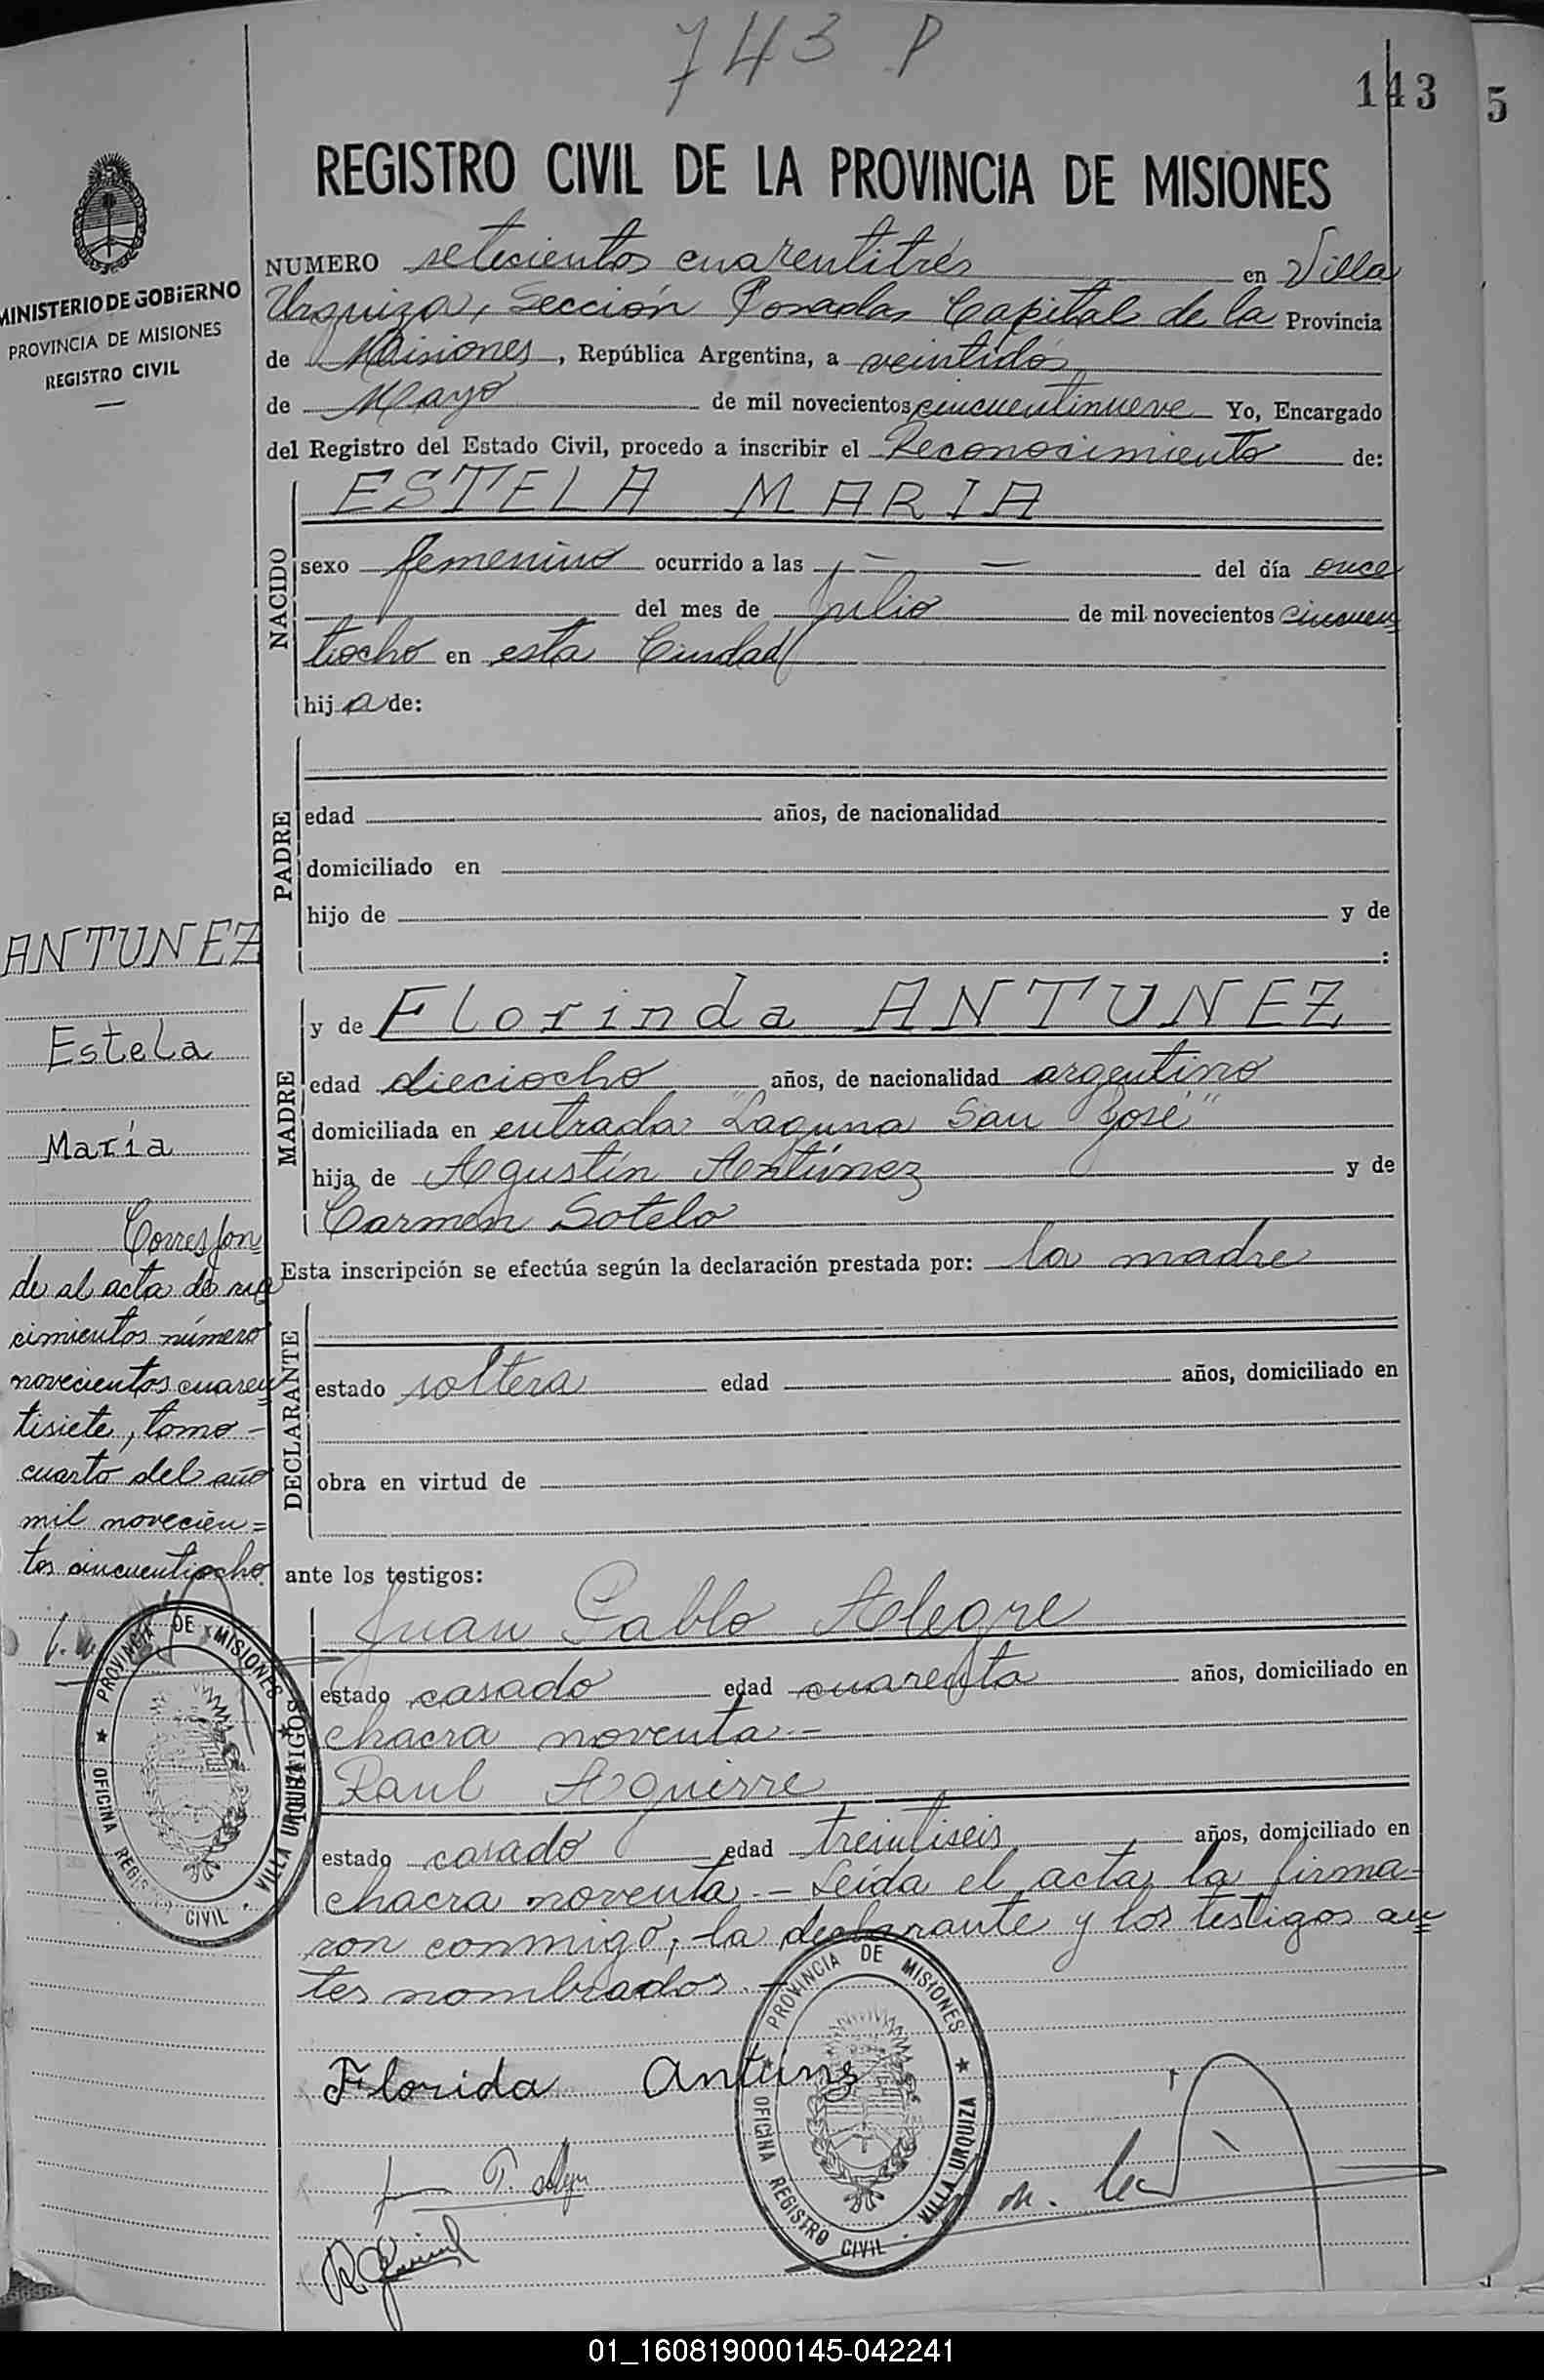 743 P
143
5
REGISTRO CIVIL DE LA PROVINCIA DE MISIONES
MINISTERIO DE GOBIERNO
PROVINCIA DE MISIONES
REGISTRO CIVIL
NUMERO setecientos cuarentitrés en Villa
Urquiza, Sección Posadas Capital de la Provincia
de Misiones, República Argentina, a veintidós
de Mayo de mil novecientos cincuentinueve Yo, Encargado
del Registro del Estado Civil, procedo a inscribir el Reconocimiento de:
NACIDO
ESTELA MARIA
sexo femenino ocurrido a las - - - del día once
del mes de Julio de mil novecientos cincuen=
tiocho en esta Ciudad
hija de:
PADRE
edad años, de nacionalidad
domiciliado en
hijo de y de
:
MADRE
y de Florinda ANTUNEZ
edad dieciocho años, de nacionalidad argentino
domiciliada en entrada "Laguna San José"
hija de Agustín Antúnez y de
Carmen Sotelo
Esta inscripción se efectúa según la declaración prestada por: la madre
DECLARANTE
estado soltera edad años, domiciliado en
obra en virtud de
ante los testigos:
TESTIGOS
Juan Pablo Alegre
estado casado edad cuarenta años, domiciliado en
chacra noventa.-
Raul Aguirre
estado casado edad treintiseis años, domiciliado en
chacra noventa.- Leída el acta, la firma-
ron conmigo, la declarante y los testigos an=
tes nombrados.-
Florida Antunz
ANTUNEZ
Estela
María
Correspon=
de al acta de na=
cimientos número
novecientos cuaren=
tisiete, tomo-
cuarto del año
mil novecien=
tos cincuentiocho.
PROVINCIA DE MISIONES
OFICINA REGISTRO CIVIL · VILLA URQUIZA
PROVINCIA DE MISIONES
OFICINA REGISTRO CIVIL · VILLA URQUIZA
01_160819000145-042241